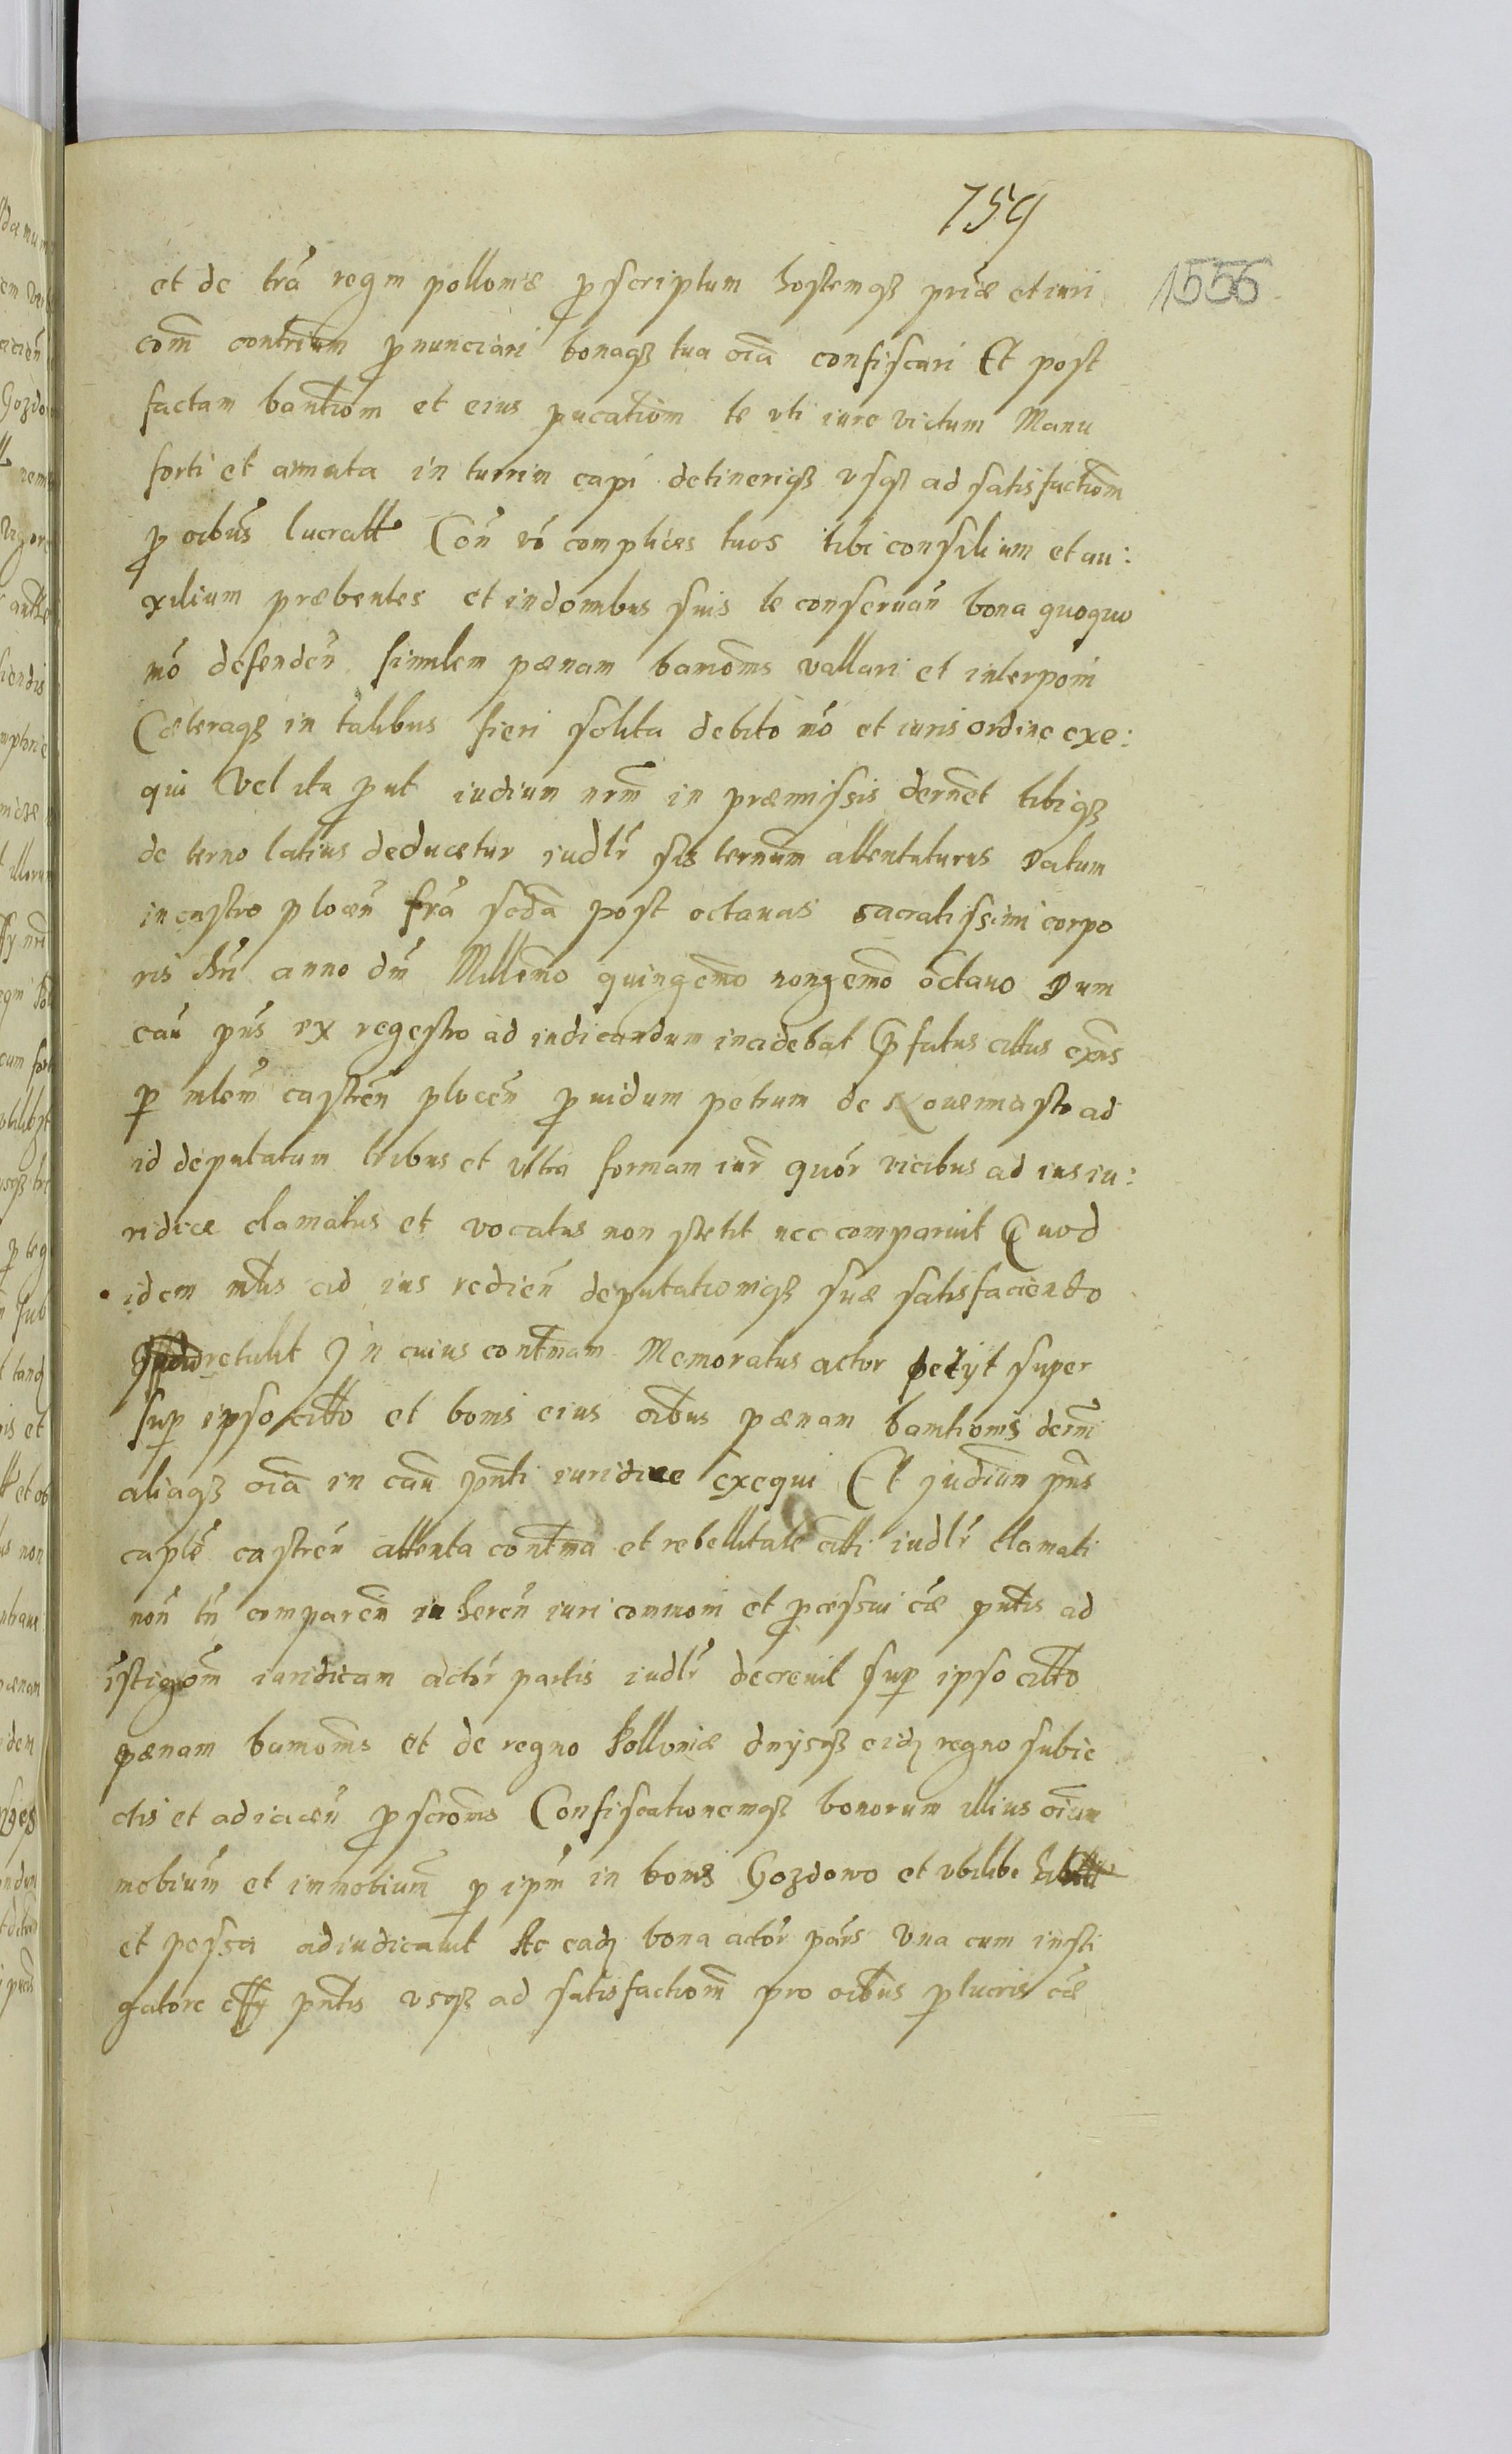 759
1556
et de trá regni polloniæ ꝓscriptum hostemqꝫ priæ et iuri
com̃ contrium ꝓnunciari bonaqꝫ tua oĩa confiscari Et post
factam banitiom̃ et eius pucatiom te vti iure victum Manu
forti et armata in turrim capi detineriqꝫ vsqꝫ ad satisfactiom̃
ꝓ oibus lucratt Con̄ vó complices tuos tibi consilium et au:
xilium præbentes et in domibus suis te conseruan̄ bona quoquo
mó defenden̄ similem pænam banioms vallari et interponi
Cæteraqꝫ in talibus fieri solita debito mó et iuris ordine exe:
qui Vel ita ꝓut iudium nrm̃ in præmissis dernet tibiqꝫ
de termo latius deducetur iudlr sis ternum attentaturus Datum
in castro plocen̄ fra scda post octauas sacratissimi corpo
ris chri anno dni Millemo quingemo nongemo octauo Dum
cau pns ex regestro ad iudicandum incidebat Præfatus cittus exns
ꝑ mlem castren̄ plocen̄ ꝓuidum petrum de Nouemiasto ad
id deputatum tribus et vltra formam iur quór vicibus ad ius iu:
ridice clamatus et vocatus non stetit nec comparuit Quod
idem mlis ad ius redien̄ deputationiqꝫ suæ satisfaciendo
retulit In cuius contmam Memoratus actor petyt super
suꝑ ipso citto et bonis eius oibus pænam banitionis derni
aliaqꝫ oĩa in cau pnti iuridice exequi Et judium pns
caple castren̄ attenta contma et rebellitate citti iudlr clamati
non tn̄ comparen̄ inheren̄ iuri communi et ꝓcessui cæ pntis ad
istigom̃ iuridicam actór partis iudlr decreuit suꝑ ipso citto
pænam banioms et de regno Polloniæ dnijsqꝫ eidꝫ regno subie
ctis et adiacen̄ ꝓscroms Confiscationemqꝫ bonorum illius oium
mobium et immobium ꝑ ipm in bonis Gozdowo et vbilibe
et possa adiudicauit Ac eadꝫ bona actór pars vna cum insti
gatore offy pntis vsqꝫ ad satisfactiom̃ pro oibus ꝑlucris cæ